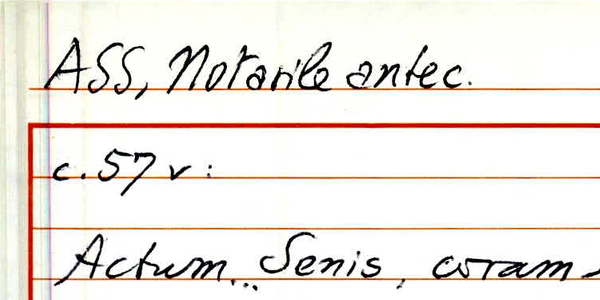 ASS, Notarile antec.
c. 57 v:
Actum... Senis, coram